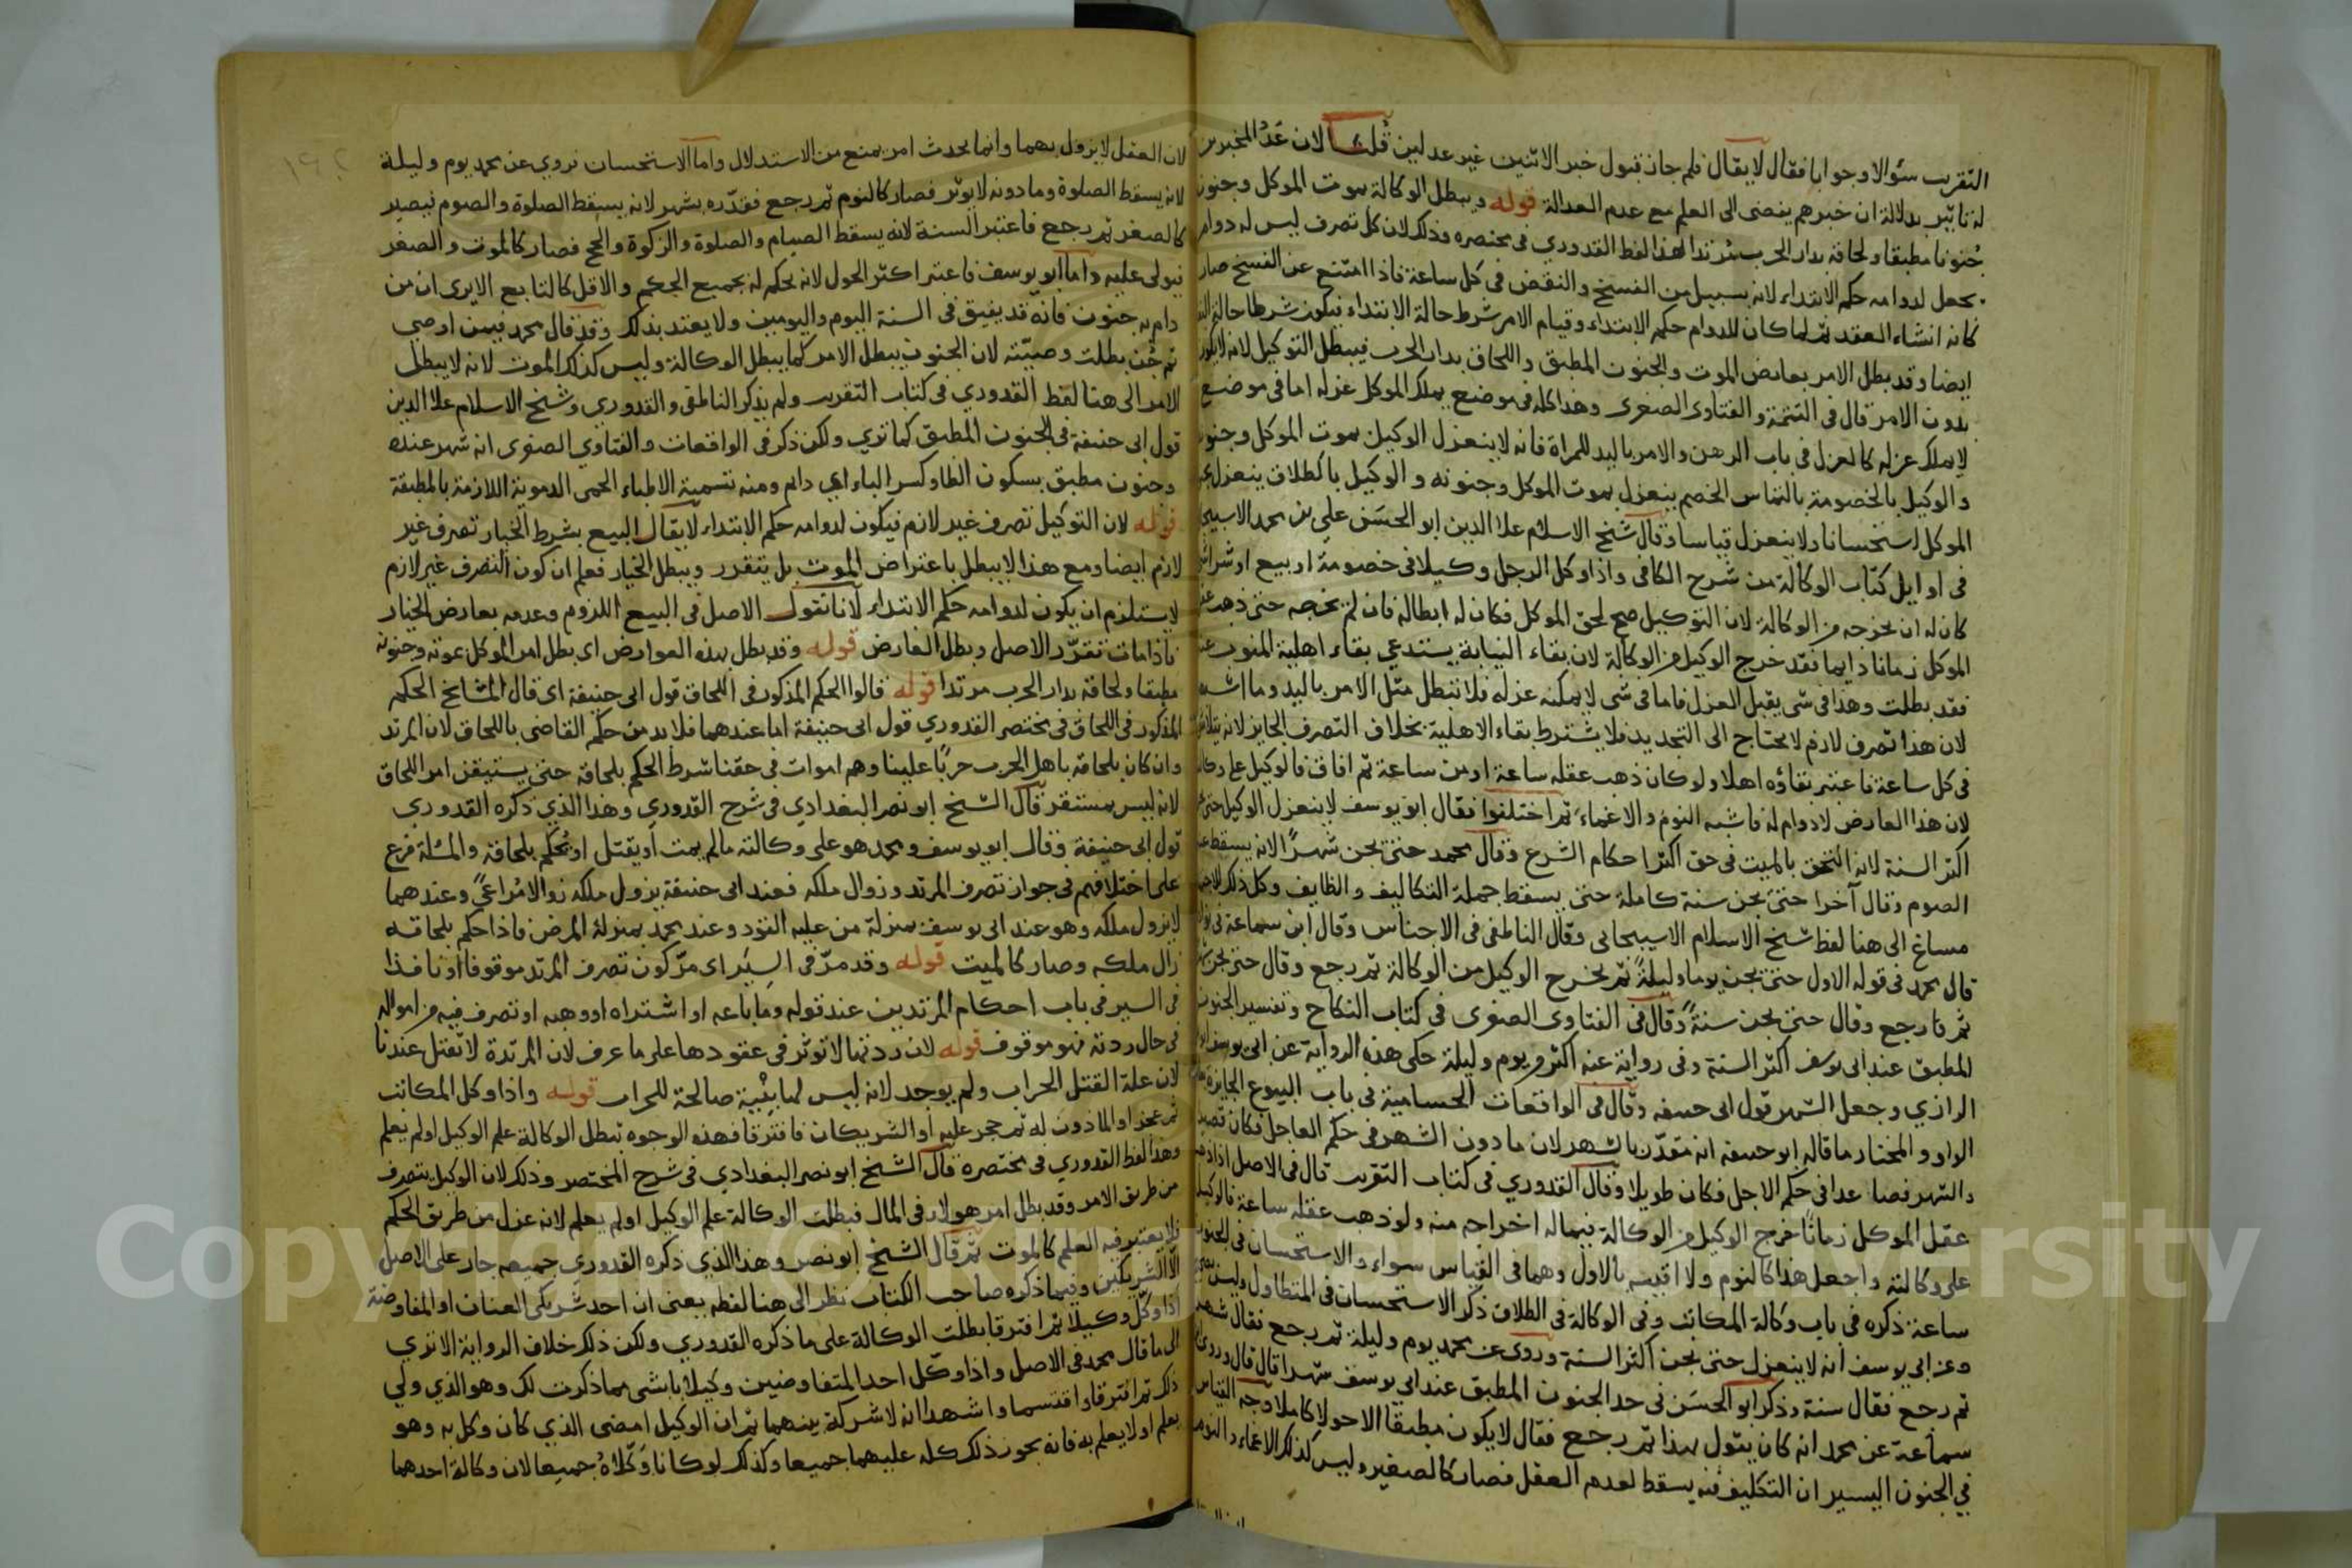 التقريب سئوالا وجوابا فقال لا يقال فلم جاز قبول خبر الاثنين غير عدلين قلنا لان عدد المخبرين
له تاثير بدلالة ان خبرهم يفضى الى العلم مع عدم العدالة قوله ويبطل الوكالة بموت الموكل وجنونه
جنونا مطبقا ولحاقه بدار الحرب مرتدا هذا لفظ القدوري فى مختصره وذلك لان كل تصرف ليس له دوام
يجعل لدوامه حكم الابتداء لانه بسبيل من الفسخ والنقض فى كل ساعة فاذا امتنع عن الفسخ صار
كانه انشاء العقد ثم لما كان للدوام حكم الابتداء وقيام الامر شرط حالة الابتداء فيكون شرطا حالة
ايضا وقد بطل الامر بعارض الموت والجنون المطبق واللحاق بدار الحرب فيبطل التوكيل لانه لا يكون
بدون الامر قال فى التتمة والفتاوى الصغرى وهذا كله فى موضع يملك الموكل عزله اما فى موضع
لا يملك عزله كالعزل فى باب الرهن والامر باليد للمراة فانه لا ينعزل الوكيل بموت الموكل وجنونه
والوكيل بالخصومة بالتماس الخصم ينعزل بموت الموكل وجنونه والوكيل بالطلاق ينعزل
الموكل استحسانا ولا ينعزل قياسا وقال شيخ الاسلام علا الدين ابو الحسن علي بن محمد الاسبيجابى
فى اوايل كتاب الوكالة من شرح الكافى واذا وكل الرجل وكيلا فى خصومة او بيع او شراء
كان له ان يخرجه من الوكالة لان التوكيل صح لحق الموكل فكان له ابطاله فان لم يخرجه حتى ذهب
الموكل زمانا دايما فقد خرج الوكيل من الوكالة لان بقاء النيابة يستدعي بقاء اهلية المنوب عنه
فقد بطلت وهذا فى شى يقبل العزل فاما فى شى لا يمكنه عزله فلا تبطل مثل الامر باليد وما اشبه
لان هذا تصرف لازم لا يحتاج الى التجديد فلا يشترط بقاء الاهلية بخلاف التصرف الجايز لانه
فى كل ساعة فاعتبر بقاؤه اهلا ولو كان ذهب عقله ساعة او من ساعة ثم افاق فالوكيل على وكالته
لان هذا العارض لا دوام له فاشبه النوم والاغماء ثم اختلفوا فقال ابو يوسف لا ينعزل الوكيل حتى
اكثر السنة لانه التحق بالميت فى حق اكثر احكام الشرع وقال محمد حتى يجن شهرا لانه يسقط عنه
الصوم وقال آخرا حتى يجن سنة كاملة حتى يسقط جملة التكاليف والظايف وكل ذلك
مساغ الى هنا لفظ شيخ الاسلام الاسبيجابى وقال الناطفى فى الاجناس وقال ابن سماعة فى
قال محمد فى قوله الاول حتى يجن يوما وليلة ثم يخرج الوكيل من الوكالة ثم رجع وقال حتى يجن
ثم رجع وقال حتى يجن سنة وقال فى الفتاوى الصغرى فى كتاب النكاح وتفسير الجنون
المطبق عند ابى يوسف اكثر السنة وفى رواية عنه اكثر من يوم وليلة حكى هذه الرواية عن ابى يوسف
الرازي وجعل الشهر قول ابى حنيفه وقال فى الواقعات الحسامية فى باب البيوع الجايزة
الواو والمختار ما قاله ابو حنيفه انه مقدر بالشهر لان ما دون الشهر فى حكم العاجل فكان قصيرا
والشهر فصاعدا فى حكم الاجل فكان طويلا وقال القدوري فى كتاب التقريب قال فى الاصل اذا ذهب
عقل الموكل زمانا خرج الوكيل من الوكالة بمنزلة اخراجه منه ولو ذهب عقله ساعة فالوكيل
على وكالته واجعل هذا كالنوم ولا اقيسه بالاول وهما فى القياس سواء والاستحسان فى الجنون
ساعة ذكره فى باب وكالة المكاتب وفى الوكالة فى الطلاق ذكر الاستحسان فى المتطاول
وعن ابى يوسف انه لا ينعزل حتى يجن اكثر السنة وروى عن محمد يوم وليلة ثم رجع فقال شهر
ثم رجع فقال سنة وذكر ابو الحسن فى حد الجنون المطبق عند ابى يوسف شهرا قال قال وروى
سماعة عن محمد انه كان يقول بهذا ثم رجع فقال لا يكون مطبقا الا حولا كاملا وجه القياس
في الجنون اليسير ان التكليف فيه يسقط لعدم العقل فصار كالصغير وليس كذلك الاغماء والنوم
لان العقل لا يزول بهما وانما يحدث امر يمنع من الاستدلال واما الاستحسان فروي عن محمد يوم وليلة
لانه يسقط الصلوة وما دونه لا يوثر فصار كالنوم ثم رجع فقدره بشهر لانه يسقط الصلوة والصوم فيصير
كالصغر ثم رجع فاعتبر السنة لانه يسقط الصيام والصلوة والزكوة والحج فصار كالموت والصغر
فيولى عليه واما ابو يوسف فاعتبر اكثر الحول لانه يحكم له بجميع الحكم والاقل كالتابع الا يرى ان من
دام به جنون فانه قد يفيق فى السنة اليوم واليومين ولا يعتد بذلك وقد قال محمد فيمن اوصى
ثم جن بطلت وصيته لان الجنون يبطل الامر كما يبطل الوكالة وليس كذلك الموت لانه لا يبطل
الامر الى هنا لفظ القدوري فى كتاب التقريب ولم يذكر الناطفى والقدوري وشيخ الاسلام علا الدين
قول ابى حنيفة فى الجنون المطبق كما تري ولكن ذكر فى الواقعات والفتاوي الصغرى انه شهر عنده
وجنون مطبق بسكون الطا وكسر الباء اي دام ومنه تسمية الاطباء الحمى الدموية اللازمة بالمطبقة
قوله لان التوكيل تصرف غير لازم فيكون لدوامه حكم الابتداء لا يقال البيع بشرط الخيار تصرف غير
لازم ايضا ومع هذا لا يبطل باعتراض الموت بل يتقرر ويبطل الخيار فعلم ان كون التصرف غير لازم
لا يستلزم ان يكون لدوامه حكم الابتداء لانا نقول الاصل فى البيع اللزوم وعدمه بعارض الخيار
فاذا مات تقرر الاصل وبطل العارض قوله وقد بطل بهذه العوارض اى بطل امر الموكل بموته وجنونه
مطبقا ولحاقه بدار الحرب مرتدا قوله قالوا الحكم المذكور فى اللحاق قول ابى حنيفة اى قال المشايخ الحكم
المذكور فى اللحاق فى مختصر القدوري قول ابى حنيفة اما عندهما فلا بد من حكم القاضى باللحاق لان المرتد
وان كان بلحاقه باهل الحرب حربا علينا وهم اموات فى حقنا شرط الحكم بلحاقه حتى يستيقن امر اللحاق
لانه ليس بمستقر قال الشيخ ابو نصر البغدادي فى شرح القدوري وهذا الذي ذكره القدوري
قول ابى حنيفة وقال ابو يوسف ومحمد هو على وكالته ما لم يمت او يقتل او يحكم بلحاقه والمسئلة فرع
على اختلافهم فى جواز تصرف المرتد وزوال ملكه فعند ابى حنيفة يزول ملكه زوالا مراعى وعندهما
لا يزول ملكه وهو عند ابى يوسف بمنزلة من عليه القود وعند محمد بمنزلة المرض فاذا حكم بلحاقه
زال ملكه وصار كالميت قوله وقد مر فى السير اى مر كون تصرف المرتد موقوفا او نافذا
فى السير فى باب احكام المرتدين عند قوله وما باعه او اشتراه او وهبه او تصرف فيه من امواله
فى حال ردته فهو موقوف قوله لان ردتها لا توثر فى عقودها على ما عرف لان المرتدة لا تقتل عندنا
لان علة القتل الحراب ولم يوجد لانه ليس لها بنية صالحة للحراب قوله واذا وكل المكاتب
ثم عجز او الماذون له ثم حجر عليه او الشريكان فافترقا فهذه الوجوه تبطل الوكالة علم الوكيل او لم يعلم
وهذا لفظ القدوري فى مختصره قال الشيخ ابو نصر البغدادي فى شرح المختصر وذلك لان الوكيل يتصرف
من طريق الامر وقد بطل امر هولاء فى المال فبطلت الوكالة علم الوكيل او لم يعلم لانه عزل من طريق الحكم
فلا يعتبر فيه العلم كالموت ثم قال الشيخ ابو نصر وهذا الذي ذكره القدوري جميعه جار على الاصل
الا الشريكين وفيما ذكره صاحب الكتاب نظر الى هنا لفظه يعنى ان احد شريكى العنان او المفاوضة
اذا وكل وكيلا ثم افترقا بطلت الوكالة على ما ذكره القدوري ولكن ذلك خلاف الرواية الا تري
الى ما قال محمد فى الاصل واذا وكل احد المتفاوضين وكيلا بشى مما ذكرت لك وهو الذي ولي
ذلك ثم افترقا واقتسما واشهدا انه لا شركة بينهما ثم ان الوكيل امضى الذي كان وكل به وهو
يعلم او لا يعلم به فانه يجوز ذلك كله عليهما جميعا وكذلك لو كانا وكلاه جميعا لان وكالة احدهما
Copyright University